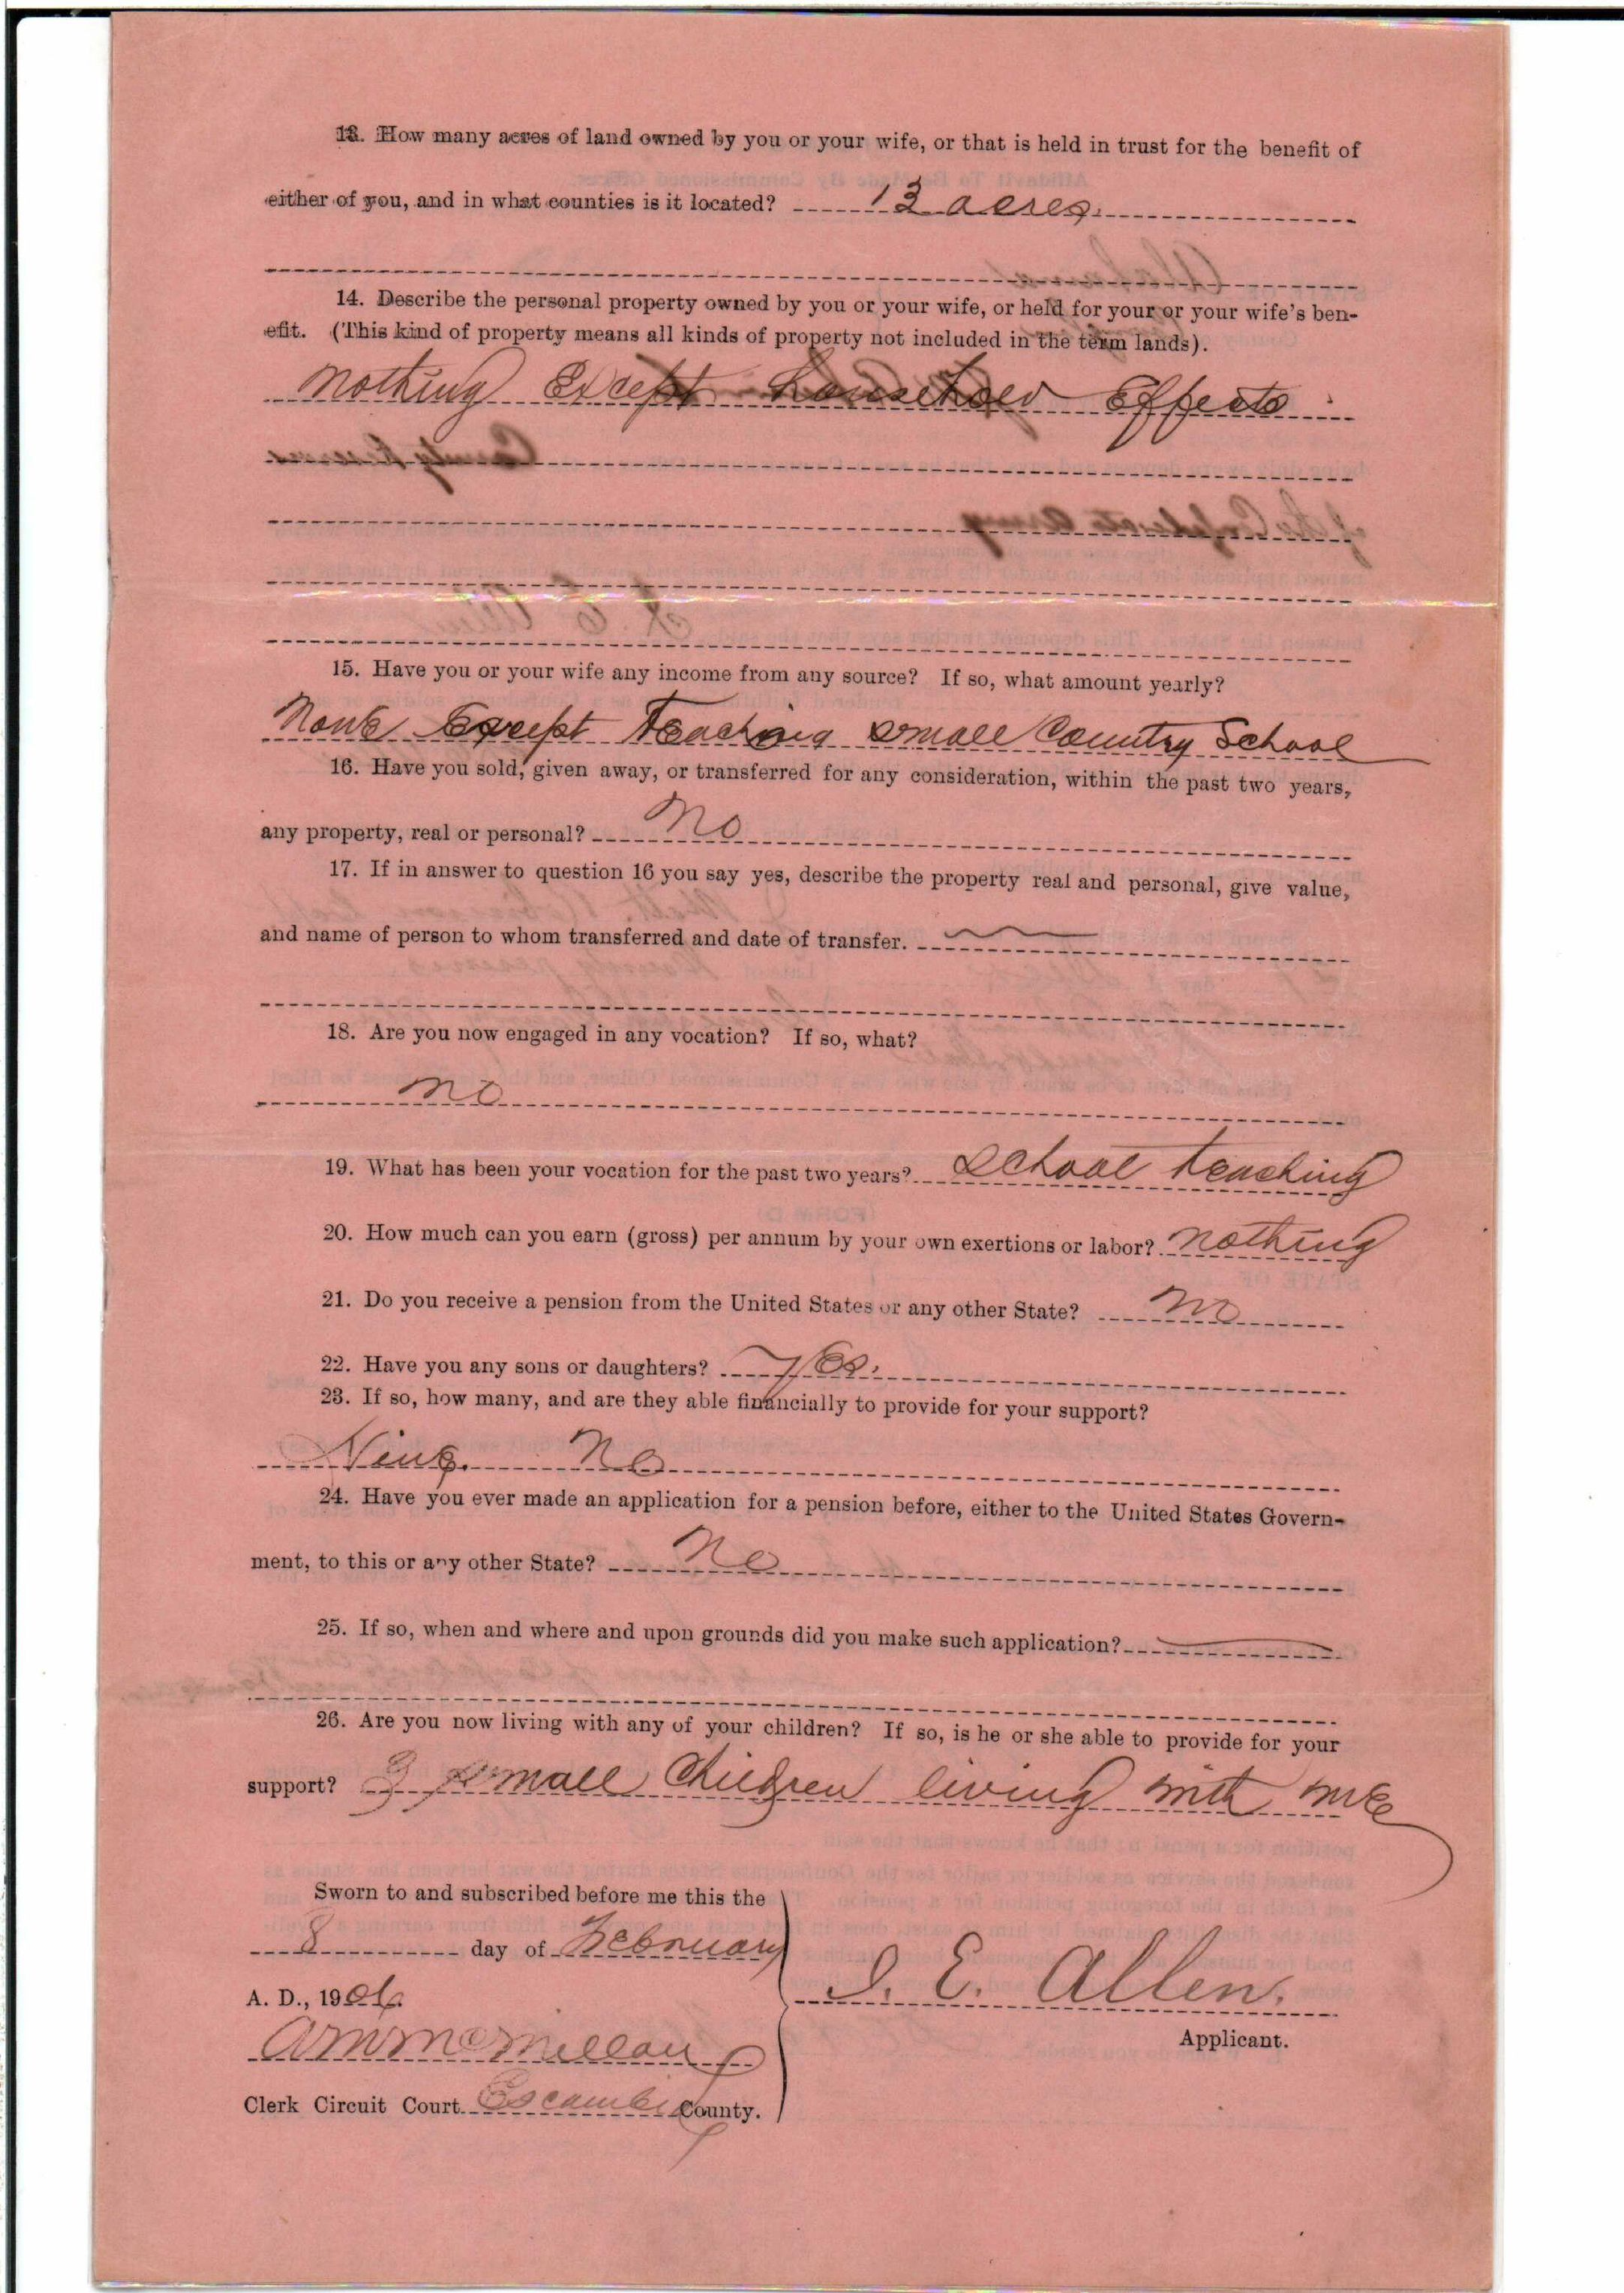 13. How many acres of land owned by you or your wife, or that is held in trust for the benefit of
either of you, and in what counties is it located? 13 acres.
14. Describe the personal property owned by you or your wife, or held for your or your wife's ben-
efit. (This kind of property means all kinds of property not included in the term lands).
Nothing Except household Effects
15. Have you or your wife any income from any source? If so, what amount yearly?
None Except Teaching small Country School
16. Have you sold, given away, or transferred for any consideration, within the past two years,
any property, real or personal? No
17. If in answer to question 16 you say yes, describe the property real and personal, give value,
and name of person to whom transferred and date of transfer.
18. Are you now engaged in any vocation? If so, what?
no
19. What has been your vocation for the past two years? School teaching
20. How much can you earn (gross) per annum by your own exertions or labor? Nothing
21. Do you receive a pension from the United States or any other State? No
22. Have you any sons or daughters? yes.
23. If so, how many, and are they able financially to provide for your support?
Nine. No
24. Have you ever made an application for a pension before, either to the United States Govern-
ment, to this or any other State? No
25. If so, when and where and upon grounds did you make such application?
26. Are you now living with any of your children? If so, is he or she able to provide for your
support? 3 small Children living with me
Sworn to and subscribed before me this the
8 day of February
A. D., 190
McMillan
Clerk Circuit Court Escambia County.
I. E. Allen.
Applicant.